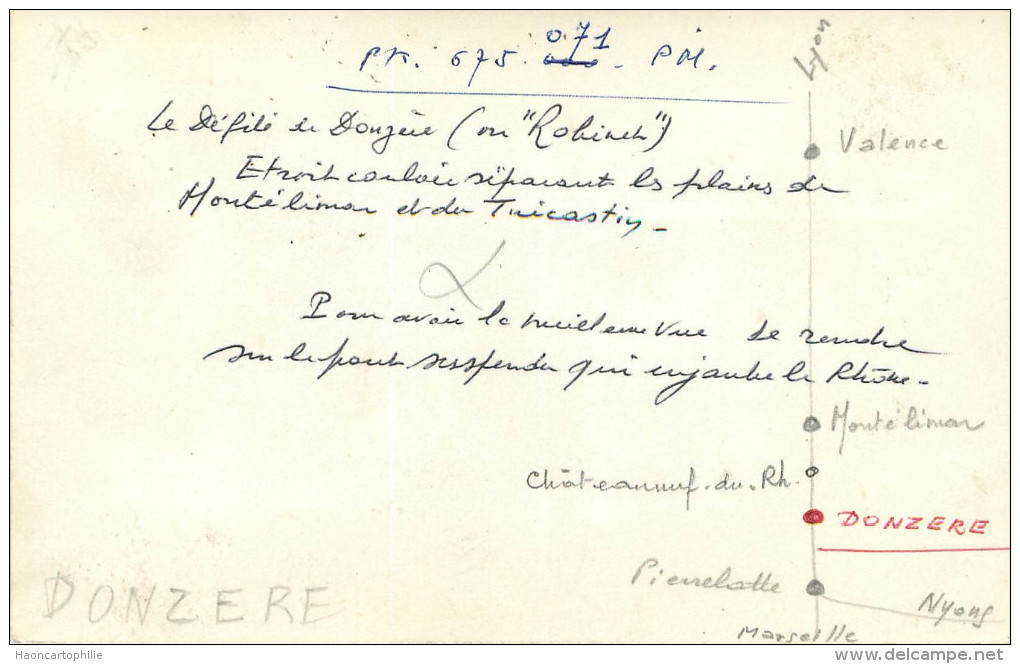 PK. 675. 071 - PM.
Le Défilé de Donzère (ou "Robinet")
Etroit couloir séparant les plaines de
Montélimar et du Tricastin -
Pour avoir la meilleure vue se rendre
sur le pont suspendu qui enjambe le Rhône -
Lyon
Valence
Montélimar
Châteauneuf. du. Rh.
DONZERE
Pierrelatte
Nyons
Marseille
DONZERE
Haoncartophilie
www.delcampe.net